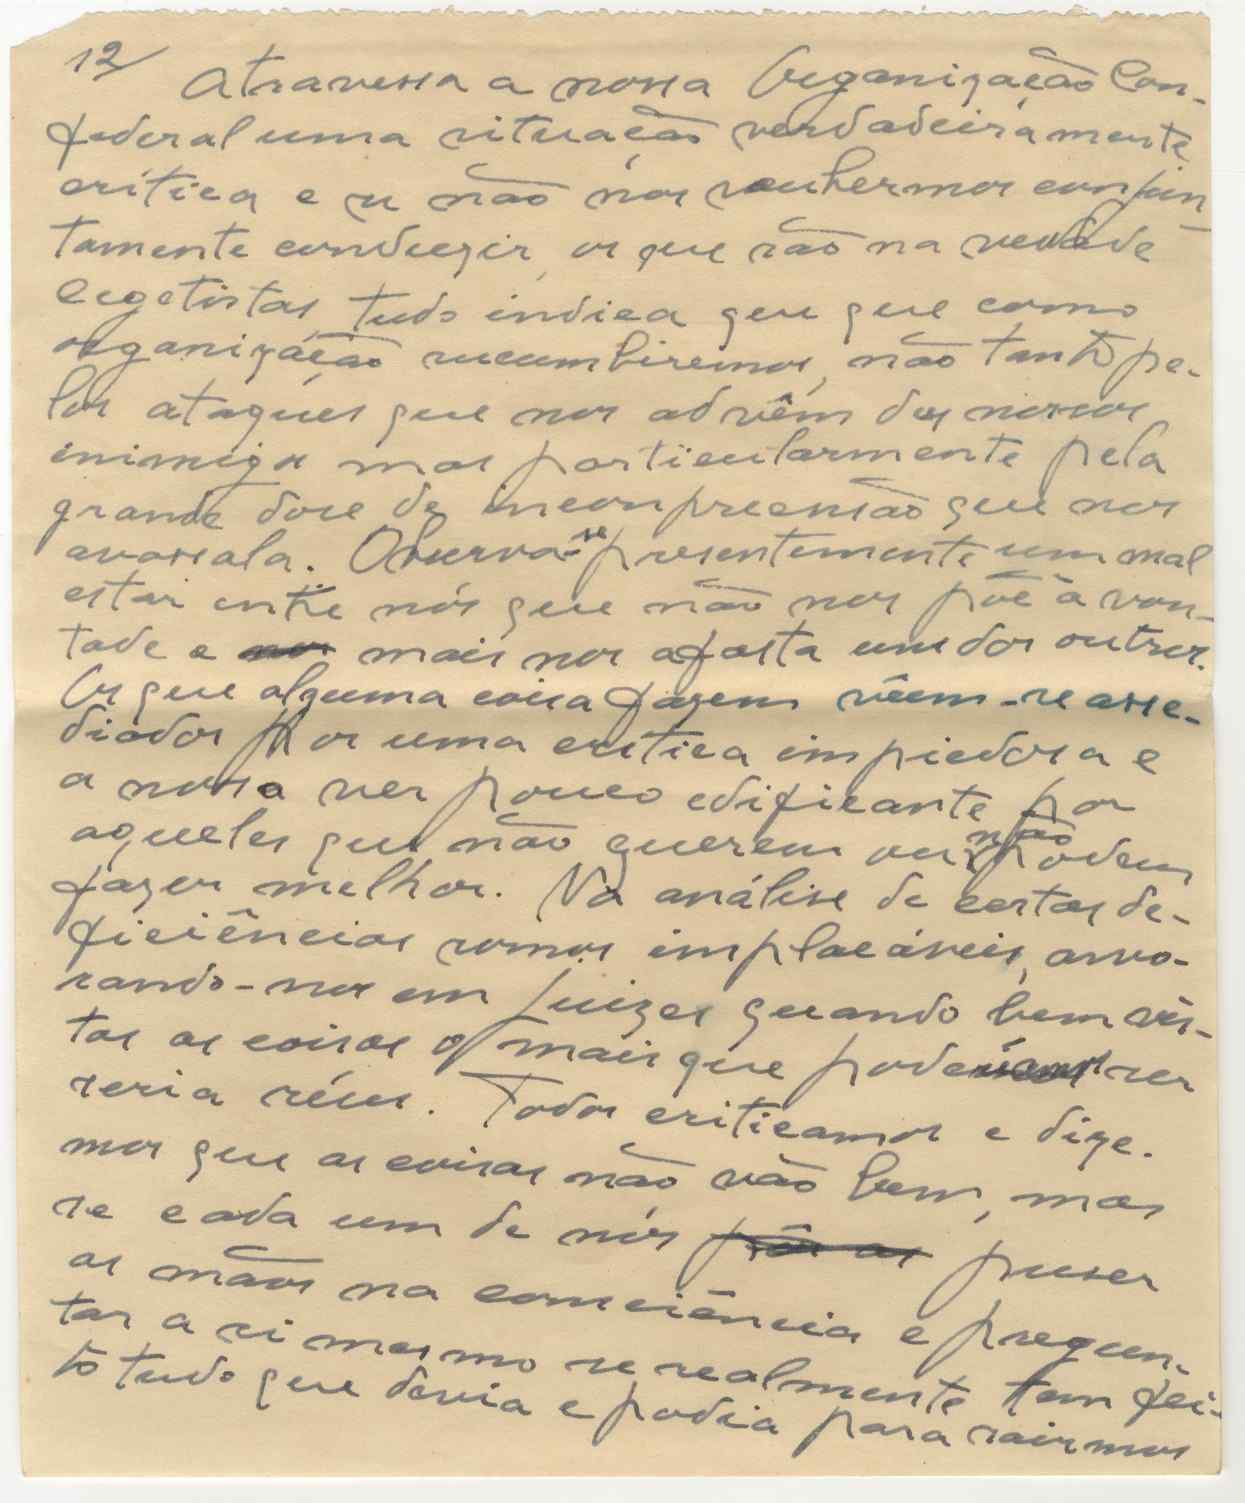 12/
Atravessa a nossa Organização Con-
federal uma situação verdadeiramente
crítica e se não nos soubermos conjun-
tamente conduzir, os que são na verdade
cegetistas, tudo indica que que como
organização sucumbiremos, não tanto pe-
los ataques que nos advêm dos nossos
inimigos mas particularmente pela
grande dose de inconpreensão que nos
avassala. Observa-se presentemente um mal
estar entre nós que não nos põe à von-
tade e nos mais nos afasta uns dos outros.
Os que alguma coisa fazem vêem-se asse-
diados por uma crítica impiedosa e
a nosso ver pouco edificante por
aqueles que não querem ou não podem
fazer melhor. Na análise de certas de-
ficiências somos implacáveis, arvo-
rando-nos em juizes quando bem vis-
tas as coisas o mais que poderíamos ser
seria réus. Todos criticamos e dize-
mos que as coisas não vão bem, mas
se cada um de nós pôr as puser
as mãos na consciência e pregun-
tar a si mesmo se realmente tem fei-
to tudo que devia e podia para sairmos